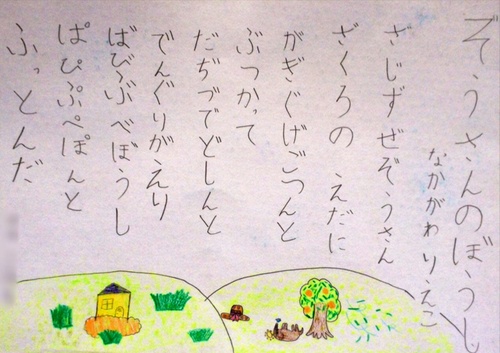 ぞうさんのぼうし
なかがわりえこ
ざじずぜぞうさん
ざくろの えだに
がぎぐげごつんと
ぶつかって
だぢづでどしんと
でんぐりがえり
ばびぶべぼうし
ぱぴぷぺぽんと
ふっとんだ